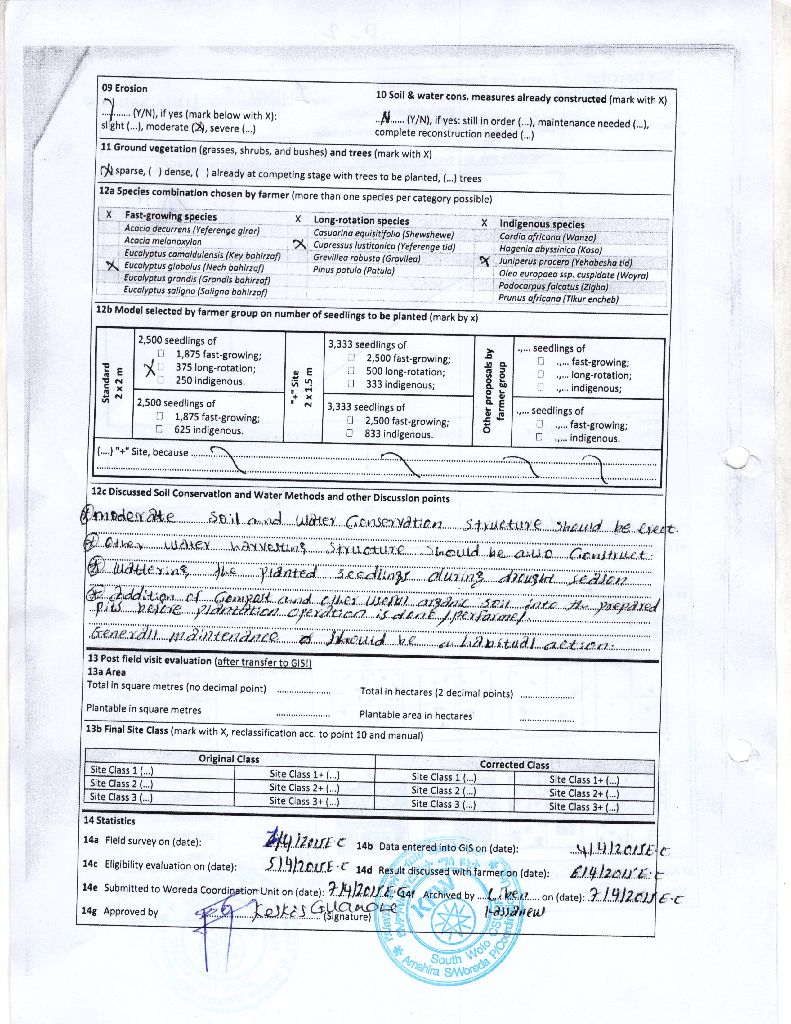 09 Erosion
Y....... (Y/N), if yes (mark below with X):
slight (...), moderate (X), severe (...)
10 Soil & water cons. measures already constructed (mark with X)
..N..... (Y/N), if yes: still in order (...), maintenance needed (...),
complete reconstruction needed (...)
11 Ground vegetation (grasses, shrubs, and bushes) and trees (mark with X)
(X) sparse, ( ) dense, ( ) already at competing stage with trees to be planted, (...) trees
12a Species combination chosen by farmer (more than one species per category possible)
X Fast-growing species
Acacia decurrens (Yeferenge girar)
Acacia melanoxylon
Eucalyptus camaldulensis (Key bahirzaf)
X Eucalyptus globolus (Nech bahirzaf)
Eucalyptus grandis (Grandis bahirzaf)
Eucalyptus saligna (Saligna bahirzaf)
X Long-rotation species
Casuarina equisitifolia (Shewshewe)
X Cupressus lusticonica (Yeferenge tid)
Grevillea robusta (Gravilea)
Pinus patula (Patula)
X Indigenous species
Cordia africana (Wanza)
Hagenia abyssinica (Koso)
X Juniperus procera (Yehabesha tid)
Oleo europaea ssp. cuspidate (Woyra)
Podocarpus falcatus (Zigba)
Prunus africana (Tikur encheb)
12b Model selected by farmer group on number of seedlings to be planted (mark by x)
Standard
2 x 2 m
2,500 seedlings of
☐ 1,875 fast-growing;
X ☐ 375 long-rotation;
☐ 250 indigenous.
2,500 seedlings of
☐ 1,875 fast-growing;
☐ 625 indigenous.
"+" Site
2 x 1.5 m
3,333 seedlings of
☐ 2,500 fast-growing;
☐ 500 long-rotation;
☐ 333 indigenous;
3,333 seedlings of
☐ 2,500 fast-growing;
☐ 833 indigenous.
Other proposals by
farmer group
.,... seedlings of
☐ .,... fast-growing;
☐ .,... long-rotation;
☐ .,... indigenous;
.,... seedlings of
☐ .,... fast-growing;
☐ .,... indigenous.
(....) "+" Site, because
12c Discussed Soil Conservation and Water Methods and other Discussion points
moderate soil and water Conservation structure should be erect.
Other water harvesting structure should be also Construct.
Wattering the planted seedlings during drought season
Addition of Compost and other useful organic soil into the prepared
pits before plantation operation is done /performe/
Generall maintenance should be a habitual action.
13 Post field visit evaluation (after transfer to GIS!)
13a Area
Total in square metres (no decimal point) ................
Total in hectares (2 decimal points) ................
Plantable in square metres ................
Plantable area in hectares ................
13b Final Site Class (mark with X, reclassification acc. to point 10 and manual)
Original Class Corrected Class
Site Class 1 (...) Site Class 1+ (...) Site Class 1 (...) Site Class 1+ (...)
Site Class 2 (...) Site Class 2+ (...) Site Class 2 (...) Site Class 2+ (...)
Site Class 3 (...) Site Class 3+ (...) Site Class 3 (...) Site Class 3+ (...)
14 Statistics
14a Field survey on (date): /4/2015 E.C
14b Data entered into GIS on (date): 4/4/2015 E.C
14c Eligibility evaluation on (date): 5/4/2015 E.C
14d Result discussed with farmer on (date): 6/4/2015 E.C
14e Submitted to Woreda Coordination Unit on (date): 7/4/2015 E.C
14f Archived by Liben Kassahew on (date): 7/4/2015 E.C
14g Approved by
(Signature)
KFW
South Wolo
Amahira S/Woreda P/Coordin